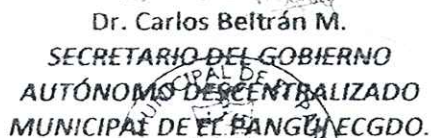 Dr. Carlos Beltrán M.
SECRETARIO DEL GOBIERNO
AUTÓNOMO DESCENTRALIZADO
MUNICIPAL DE EL PANGUI ECGDO.